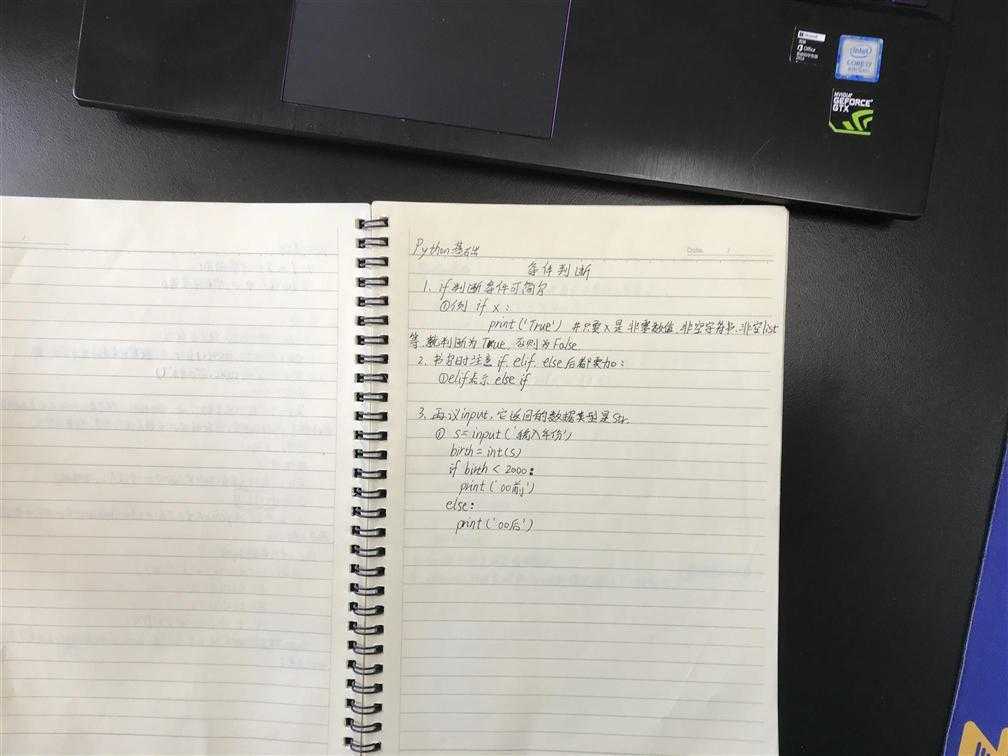 Office
intel
CORE i7
NVIDIA
GEFORCE
GTX
Python基础
Date. /
条件判断
1. if判断条件可简写
①例 if x:
print('True') #只要x是非零数值、非空字符串、非空list
等,就判断为True,否则为False
2. 书写时注意if、elif、else后都要加:
①elif表示else if
3. 再议input,它返回的数据类型是str.
① s=input('输入年份')
birth=int(s)
if birth < 2000:
print('00前')
else:
print('00后')